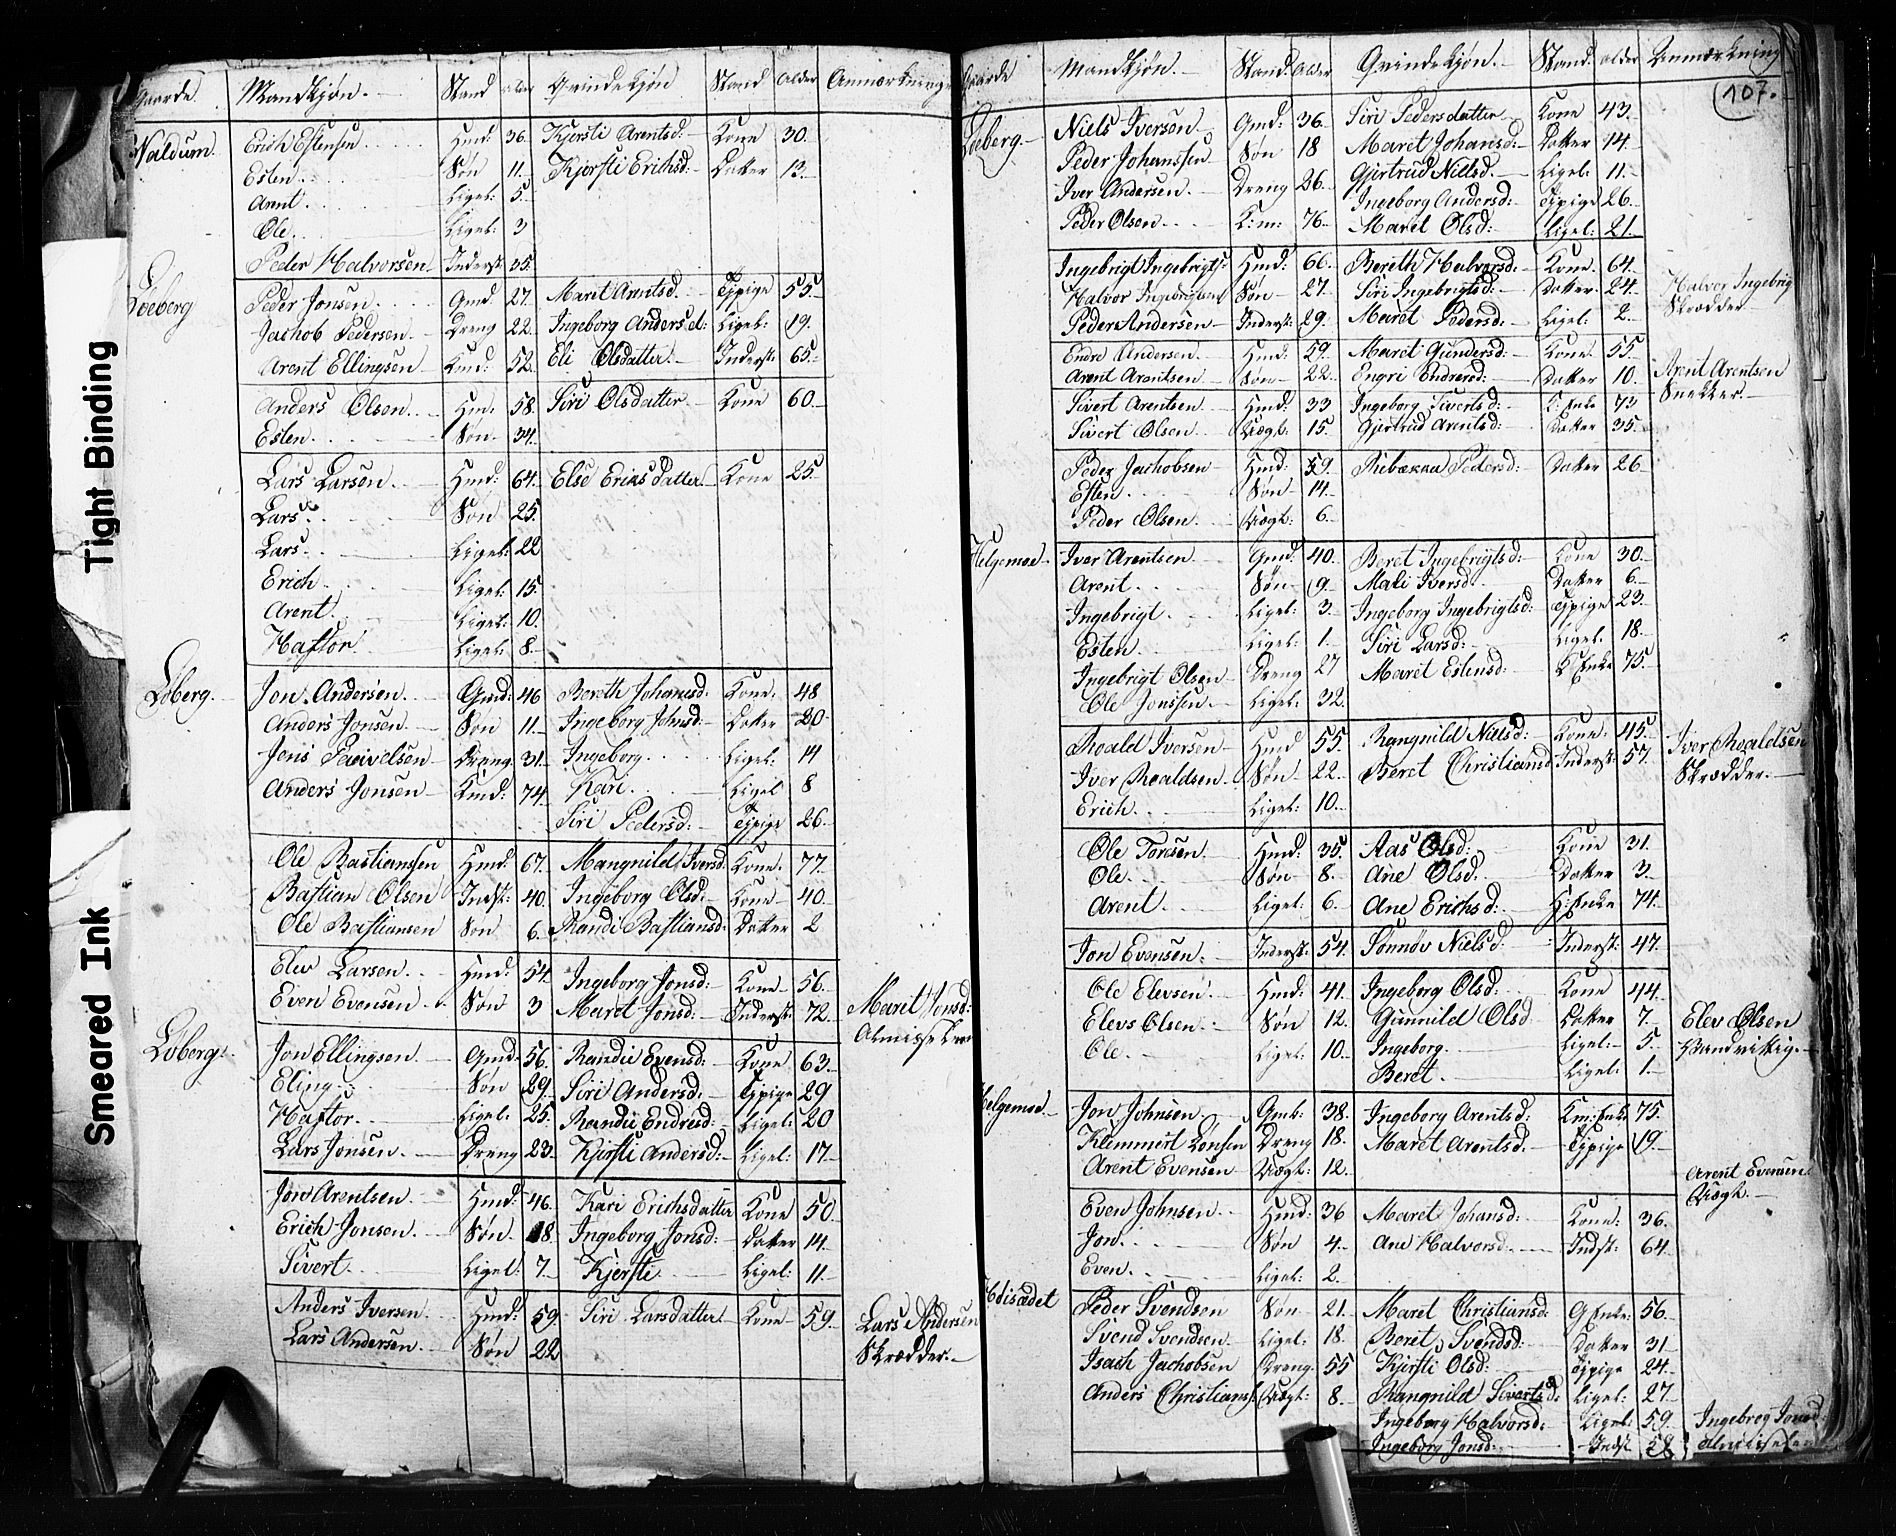 Tight Binding
Smeared Ink
Gaarde. Mandkjøn. Stand alder Qvindekjøn Stand alder Anmærkninge
Naldum. Erich Estensen Hmd: 36. Kjersti Arentsd: Kone 30.
Esten. Søn 11. Kjersti Erichsd: Datter 13.
Arent. Ligel: 5.
Ole. Ligel: 3
Peder Halvorsen Inderst: 35.
Loeberg Peder Jonsen. Gmd: 27. Marit Arntsd. Tjpige 55.
Jachob Pedersen. Dreng 22. Ingeborg Andersd: Ligel: 19.
Arent Ellingsen Kmd: 52. Eli Olsdatter. Inderst: 65.
Anders Olsen. Hm: 58. Siri Olsdatter Kone 60.
Esten. Søn 34.
Lars Larsen. Hmd: 64. Else Eriksdatter. Kone 25.
Lars. Søn 25.
Lars. Ligel: 22
Erich Ligel: 15.
Arent. Ligel: 10.
Haftor. Ligel: 8.
Loberg. Jon Andersen. Gmd: 46 Bereth Johansd: Kone. 48
Anders Jonsen. Søn 11. Ingeborg Johnsd: Datter 20
Jens Pauvelsen Dreng 31. Ingeborg. Ligel: 14
Anders Jonsen Kmd: 74. Kari. Ligel 8
Siri Pedersd: Tjpige 26.
Ole Bastianssen Hmd: 67. Mangnild Iversd: Kone. 77.
Bastian Olsen Indst: 40. Ingeborg Olsd: Kone 40
Ole Bastiansen Søn 6. Randi Bastiansd: Datter 2
Elev Larsen. Hmd: 54 Ingeborg Jonsd: Kone 56.
Even Evensen. Søn 3 Maret Jonsd: Inderst: 72. Marit Jonsd:
Almisse Lem
Loberg. Jon Ellingsen. Gmd: 56. Randii Evensd: Kone 63.
Eling. Søn 29. Siri Andersd: Tjpige 29
Haftor. Ligel: 25. Randii Endresd: Ligel: 20
Lars Jonsen. Dreng 23. Kjersti Andersd: Ligel: 17.
Jon Arentsen. Hmd: 46. Kari Erichsdatter Kone 50.
Erich Jonsen. Søn 18. Ingeborg Jonsd: Datter 14.
Sivert. Ligel: 7. Kjersti Ligel: 11.
Anders Iversen. Hmd: 59. Siri Larsdatter Kone 59. Lars Andersen
Lars Andersen. Søn 22 Skrædder.
Gaarde Mandkjøn. Stand. alder Qvindekjøn. Stand. alder Anmærkning
107.
Loeberg Niels Iversen. Gmd: 36. Siri Pedersdatter Kone 43.
Peder Johanssen Søn 18 Maret Johansd: Datter 14.
Iver Andersen. Dreng 26. Gjertrud Nielsd. Ligel: 11.
Ingeborg Andersd: Tjpige 26.
Peder Olsen K:m: 76. Maret Olsd: Ligel: 21.
Ingebrigt Ingebrigts: Hmd: 66. Bereth Halvorsd: Kone. 64.
Halvor Ingebrigtsen Søn 27. Siri Ingebrigtsd: Datter 24. Halvor Ingebrig
Peder Andersen Inderst: 29. Maret Pedersd: Ligel: 2. Skrædder
Endre Andersen. Hmd: 59. Maret Gundersd: Kone 55
Arent Arentsen Søn 22. Engri Endresd: Datter 10. Arent Arentsen
Snekker.
Sivert Arentsen. Hmd: 33 Ingeborg Sivertsd: K: Enke 73
Sivert Olsen. Vægt: 15. Gjertrud Arentsd: Datter 35.
Peder Jachobsen Hmd: 59. Rebækka Pedersd: Datter 26
Esten Søn 14.
Peder Olsen. Vægt: 6.
Helgemoe Iver Arentsen Gmd: 40. Beret Ingebrigtsd: Kone 30.
Arent. Søn 9. Mali Iversd. Datter 6.
Ingebrigt. Ligel: 3. Ingeborg Ingebrigtsd: Tjpige 23.
Esten. Ligel: 1. Siri Larsd: Ligel: 18.
Ingebrigt Olsen Dreng 27 Maret Estensd: K Enke 75.
Ole Jonssen. Ligel: 32.
Roald Iversen Hmd 55. Rangnild Nilsd: Kone: 45.
Iver Roaldsen. Søn 22. Beret Christiansd Inderst: 57. Iver Roaldsen
Skrædder.
Erich. Ligel: 10.
Ole Tonsen. Hmd: 35. Aas Olsd: Kone 31.
Ole. Søn 8. Ane Olsd. Datter 3.
Arent. Ligel: 6. Ane Erichsd: H: Enke 74.
Jon Evensen. Inderst: 54. Sønnøv Nielsd: Inderst: 47.
Ole Elevsen. Hmd: 41. Ingeborg Olsd: Kone 44.
Elevs Olsen. Søn 12. Gunnild Olsd Datter 7. Elev Olsen
Ole. Ligel: 10. Ingeborg. Ligel: 5. Vandvittig.
Beret. Ligel: 1.
Helgemoe. Jon Johnsen Gmb: 38. Ingeborg Arentsd: Km: Enke 75.
Klemmert Lonsen Dreng 18. Maret Arentsd. Tjpige 19.
Arent Evensen Vægt: 12. Arent Evensen
Vægt.
Even Johnsen. Hmd: 36 Maret Johansd: Kone: 36.
Jon. Søn 4. Ane Halvorsd. Indst: 64.
Even. Ligel: 2.
Peder Svendsen Søn 21. Maret Christiansd: G Enke: 56.
Svend Svendsen. Ligel: 18. Beret Svendsd: Datter 31
Isach Jachobsen Dreng. 55 Kjersti Olsd: Tjpige 24.
Anders Christians: Vægt: 8. Rangnild Sivertsd: Ligel: 27.
Ingeborg Halvorsd: Ligel: 59. Ingebreg Jonsd:
Ingeborg Jonsd: Indst